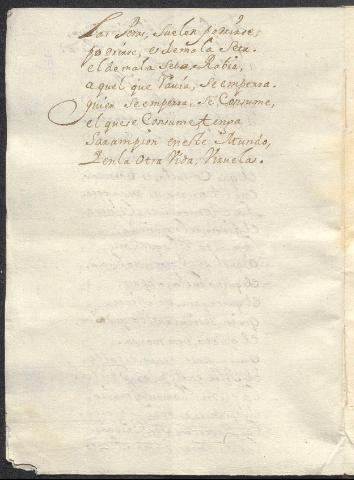 Las Peras, Suelen podrirse;
podrirse, es de mala Seta.
el de mala Seta, Rabia,
aquel que Ravia, se emperra.
quien se emperra, se Consume,
el que se Consume tenga
Sarampion en este Mundo,
Y en la Otra Vida, Viruelas.